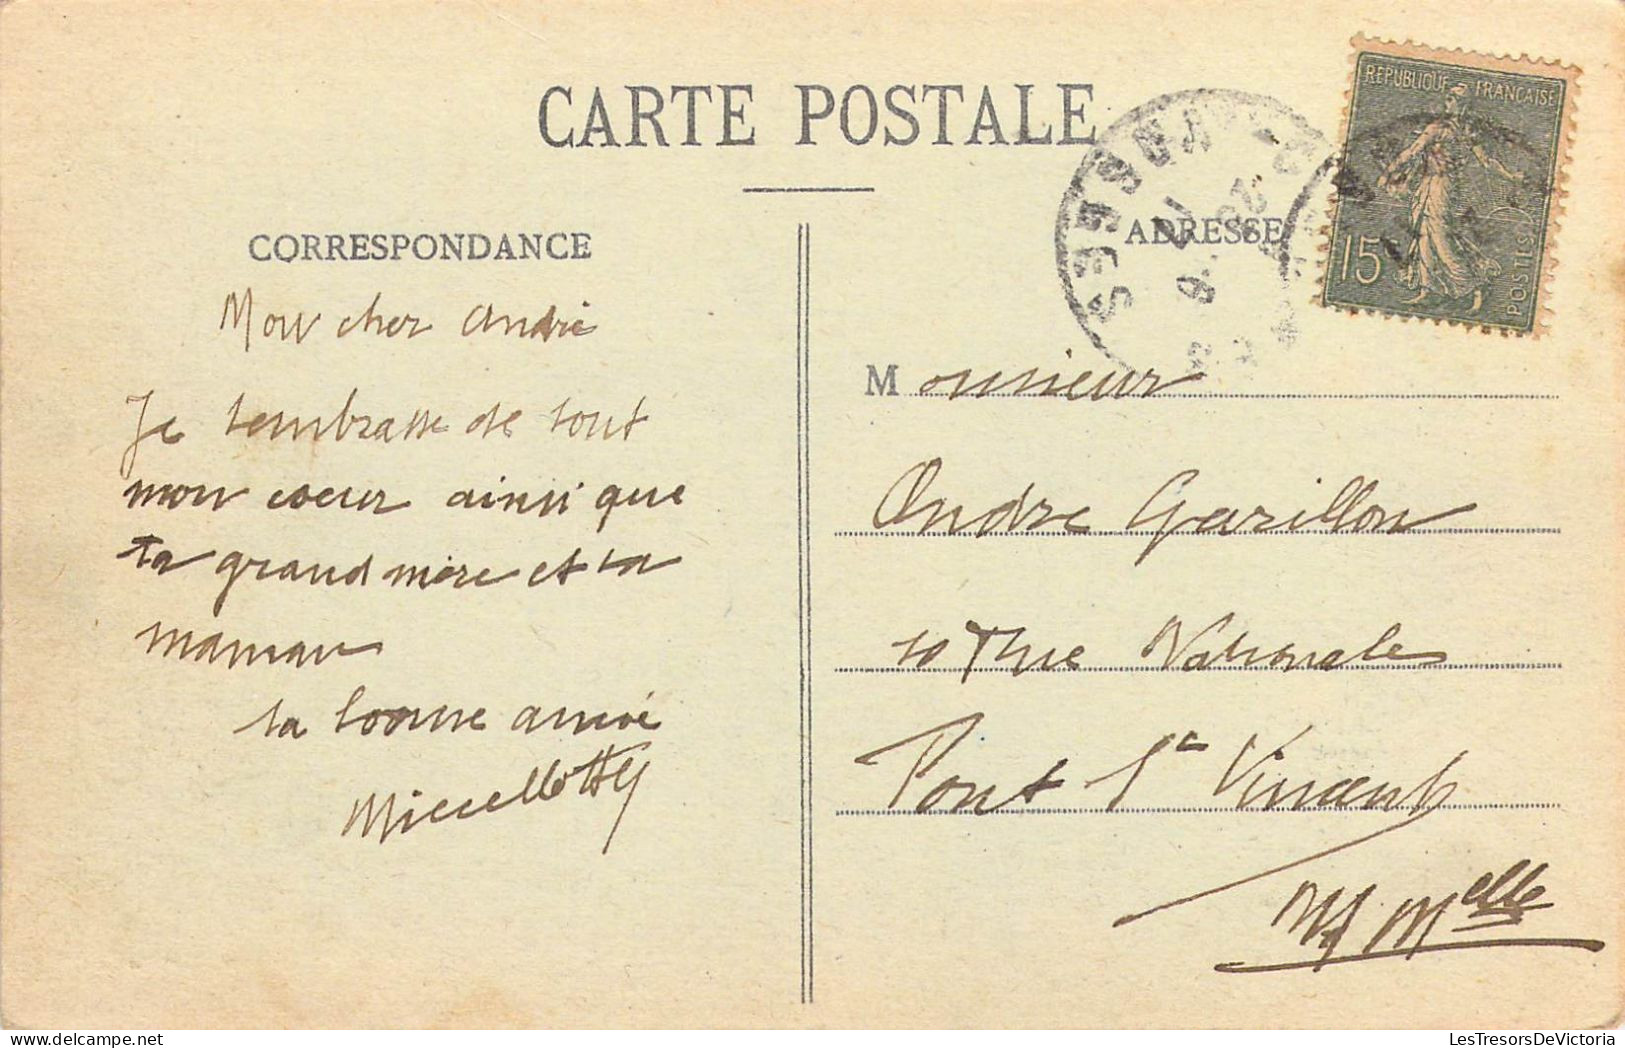 CARTE POSTALE
CORRESPONDANCE
Mon cher André
Je t'embrasse de tout
mon coeur ainsi que
ta grand mère et ta
maman
ta bonne amie
ADRESSE
REPUBLIQUE FRANÇAISE
15c
POSTES
VOSGES
Monsieur
André Garillon
10 Rue Nationale
Pont St Vincent
M et Mselle
LesTresorsDeVictoria